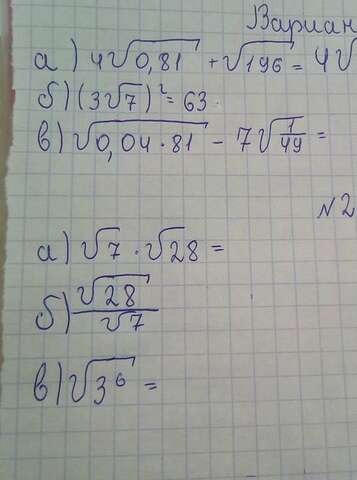 Вариан
а) 4√0,81 + √196 = 4√
б) (3√7)² = 63
в) √0,04·81 - 7√1/49 =
№2
а) √7 · √28 =
б) √28/√7
в) √3⁶ =